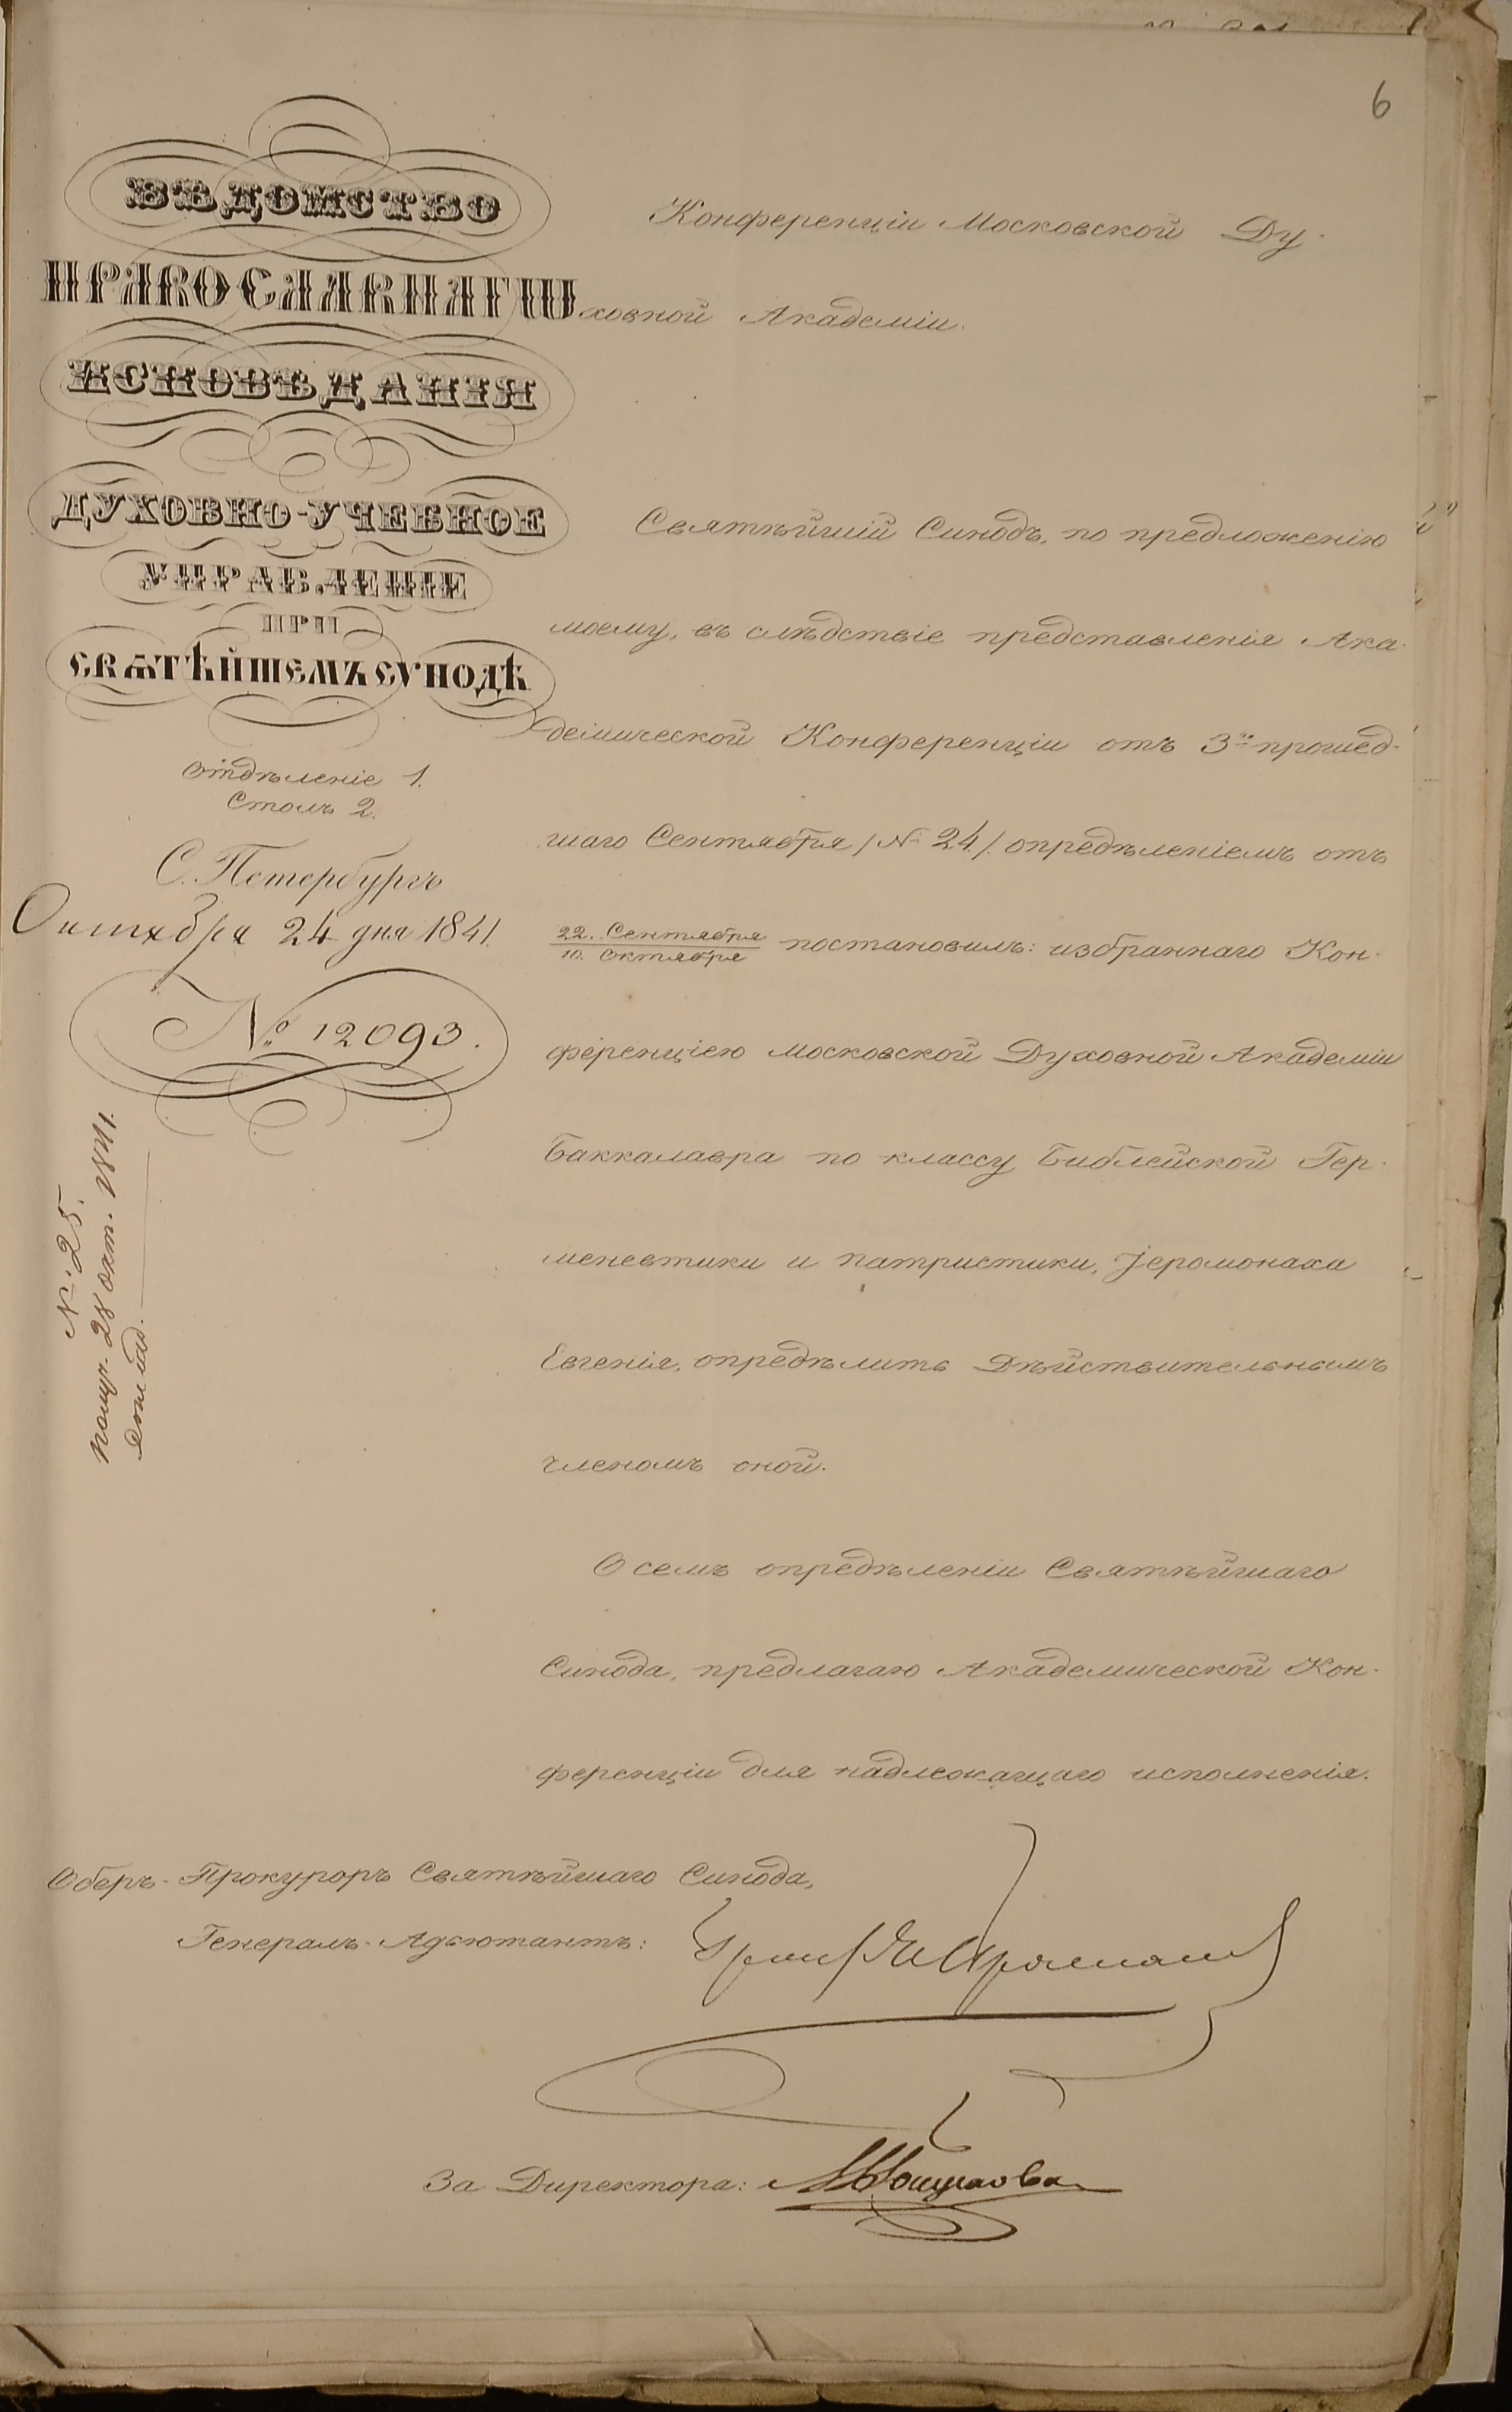 6
ВѢДОМСТВО
ПРАВОСЛАВНАГѠ
ИСПОВѢДАНІЯ
ДУХОВНО-УЧЕБНОЕ
УПРАВЛЕНІЕ
ПРИ
СВѦТѢЙШЕМЪ СѴНОДѢ
Отдѣленіе 1.
Столъ 2.
С. Петербургъ
Октября 24 дня 1841.
№ 12093.
№ 25.
получ. 28 окт. 1841.
Конференціи Московской Ду-
ховной Академіи.
Святѣйшій Синодъ, по предложенію
моему, въ слѣдствіе представленія Ака-
демической Конференціи отъ 3го прошед-
шаго Сентября /№ 24/. опредѣленіемъ отъ
22. Сентября
10. Октября постановилъ: избраннаго Кон-
ференціею Московской Духовной Академіи
Баккалавра по классу Библейской Гер-
меневтики и патристики, Іеромонаха
Евгенія, опредѣлить Дѣйствительнымъ
членомъ оной.
О семъ опредѣленіи Святѣйшаго
Синода, предлагаю Академической Кон-
ференціи для надлежащаго исполненія.
Оберъ-Прокуроръ Святѣйшаго Синода,
Генералъ-Адъютантъ: Графъ Н. Протасовъ
За Директора: